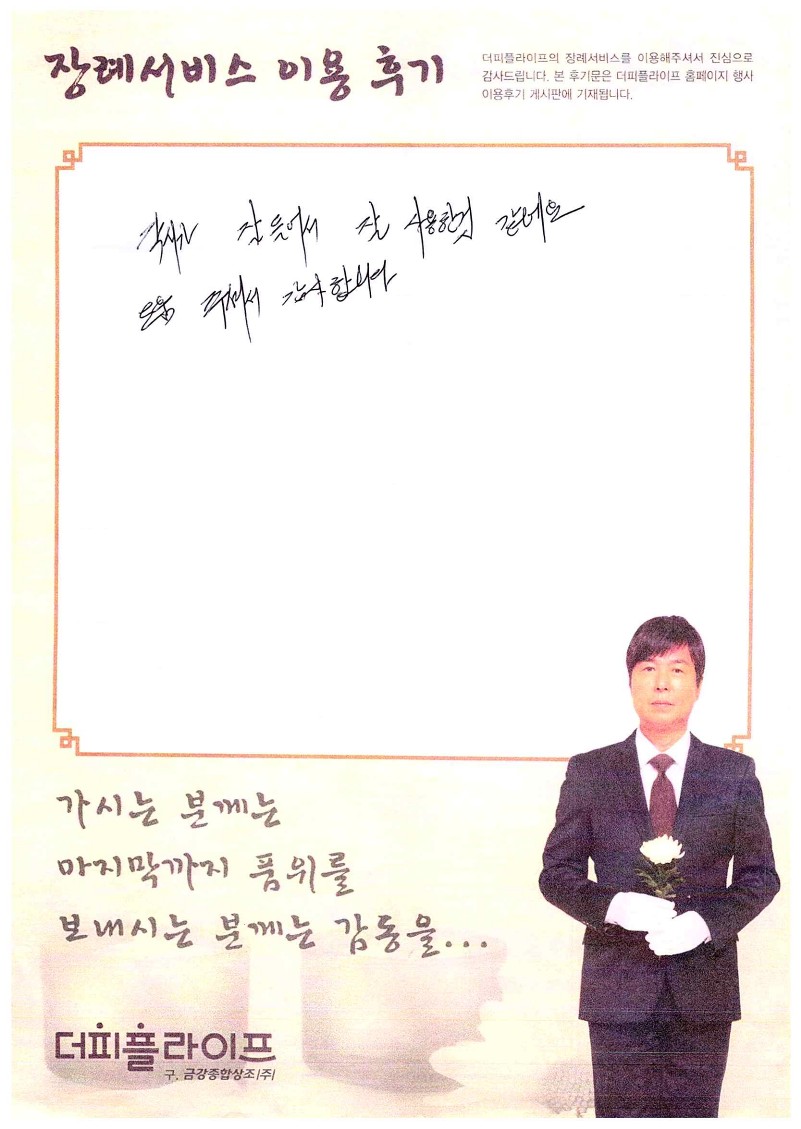 장례서비스 이용 후기
더피플라이프의 장례서비스를 이용해주셔서 진심으로
감사드립니다. 본 후기문은 더피플라이프 홈페이지 행사
이용후기 게시판에 기재됩니다.
잘 사용한것 같네요
주셔서 감사합니다
가시는 분께는
마지막까지 품위를
보내시는 분께는 감동을...
더피플라이프
구. 금강종합상조(주)